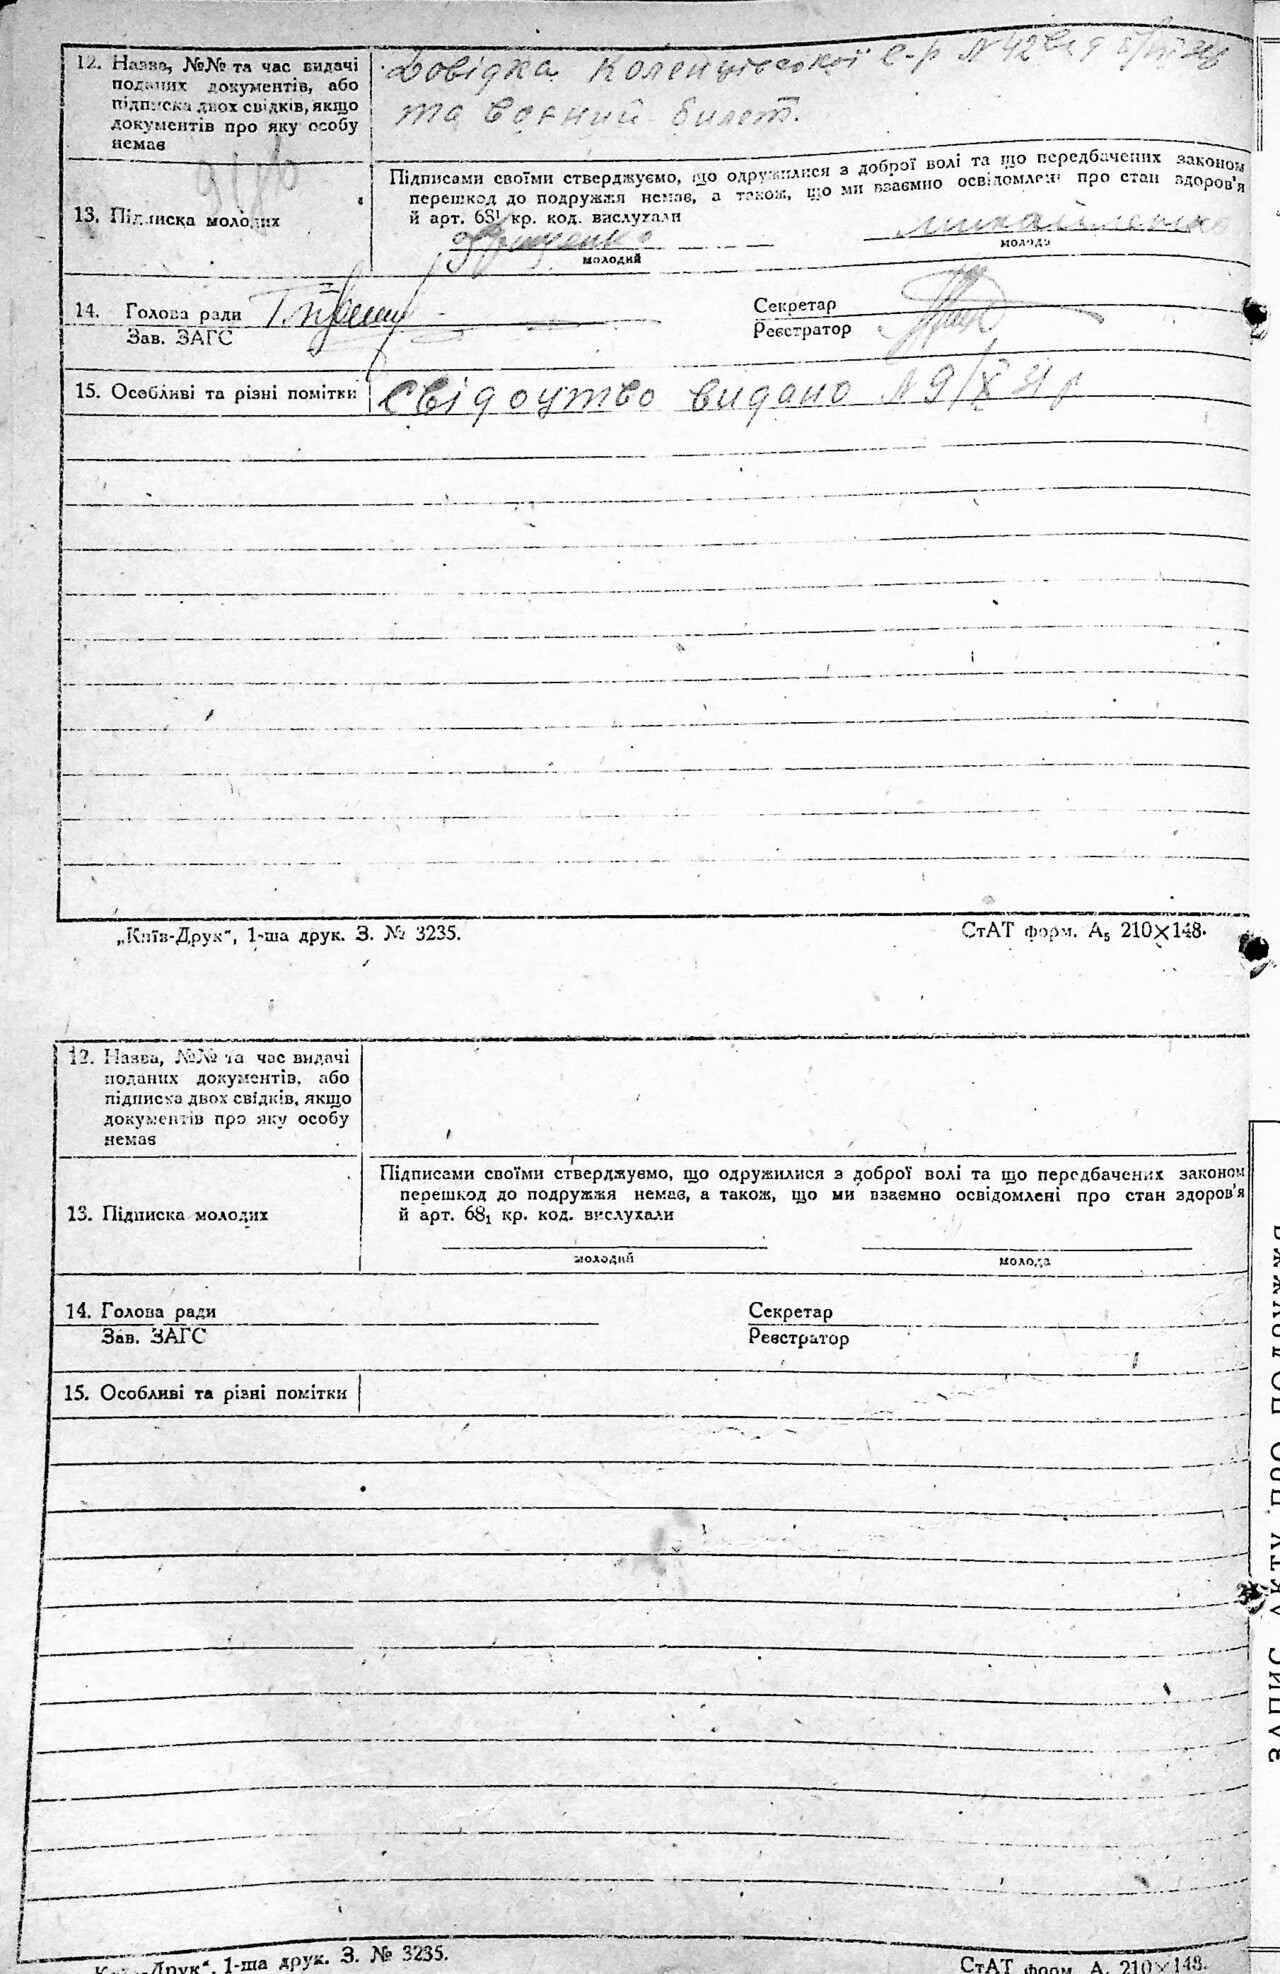 12. Назва, №№ та час видачі
поданих документів, або
підписка двох свідків, якщо
документів про яку особу
немає
Довідка Коленцівської с-р N 42
та воєний билет.
13. Підписка молодих
Підписами своїми стверджуємо, що одружилися з доброї волі та що передбачених законом
перешкод до подружжя немає, а також, що ми взаємно освідомлені про стан здоров'я
й арт. 68₁ кр. код. вислухали
михайленко
молодий
молода
14. Голова ради
Зав. ЗАГС
Секретар
Реєстратор
15. Особливі та різні помітки
Свідоцтво видано N 9/X 31 р
„Київ-Друк“, 1-ша друк. З. № 3235.
СтАТ форм. А₅ 210×148.
12. Назва, №№ та час видачі
поданих документів, або
підписка двох свідків, якщо
документів про яку особу
немає
13. Підписка молодих
Підписами своїми стверджуємо, що одружилися з доброї волі та що передбачених законом
перешкод до подружжя немає, а також, що ми взаємно освідомлені про стан здоров'я
й арт. 68₁ кр. код. вислухали
молодий
молода
14. Голова ради
Зав. ЗАГС
Секретар
Реєстратор
15. Особливі та різні помітки
Київ-Друк“, 1-ша друк. З. № 3235.
СтАТ форм. А. 210×148.
ЗАПИС АКТУ ПРО ПОДРУЖЖЯ